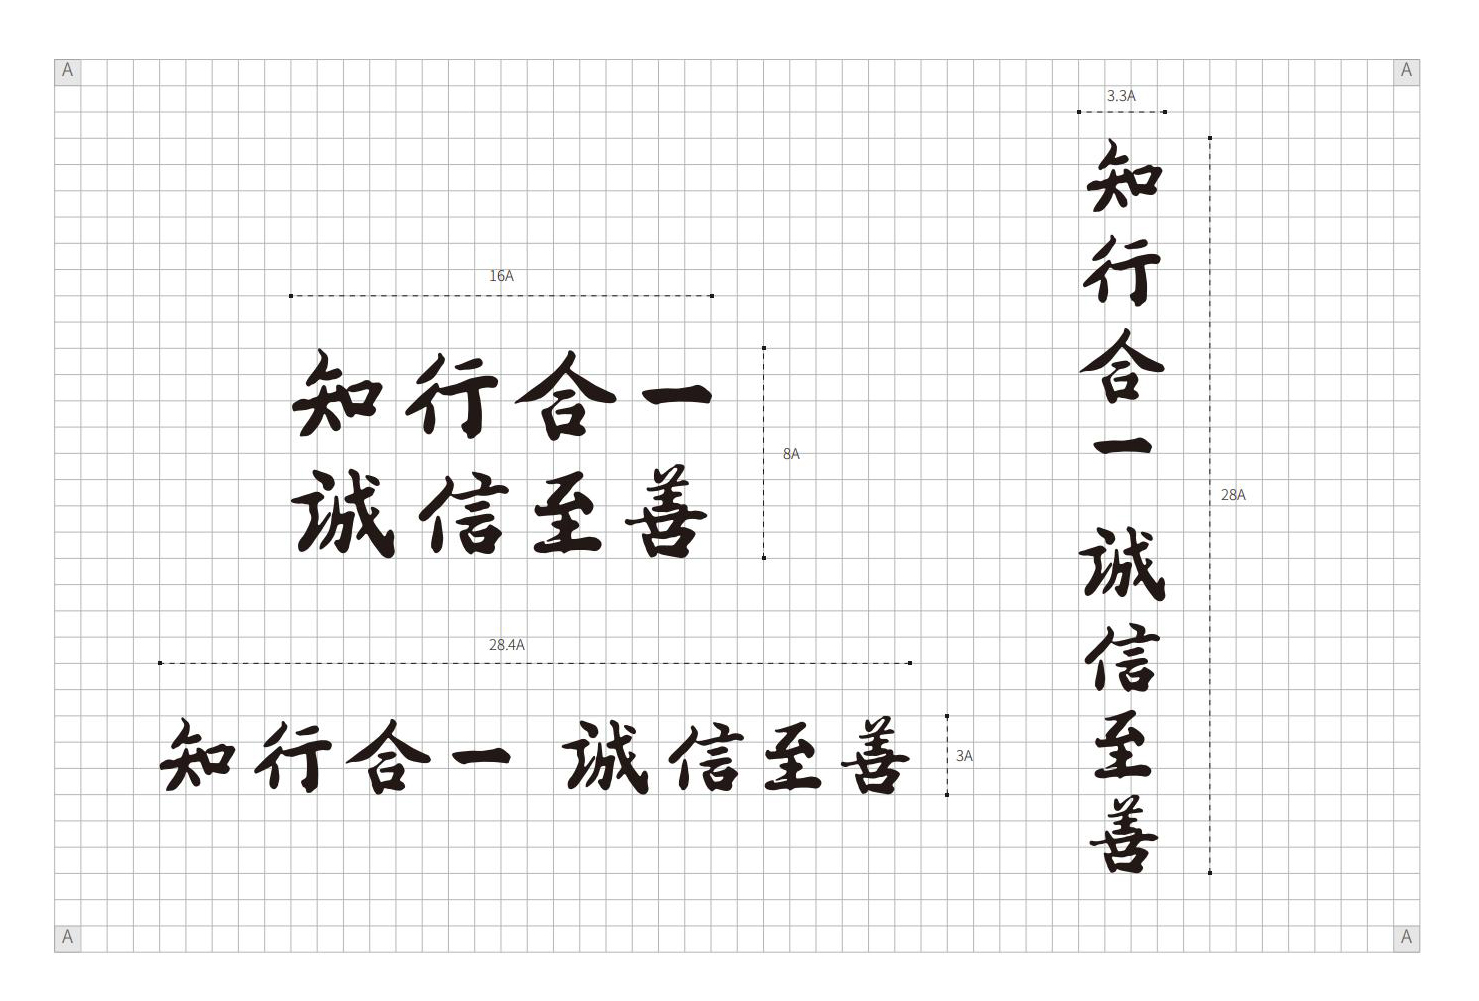 A
A
3.3A
知行合一 誠信至善
28A
16A
知行合一
誠信至善
8A
28.4A
知行合一 誠信至善
3A
A
A